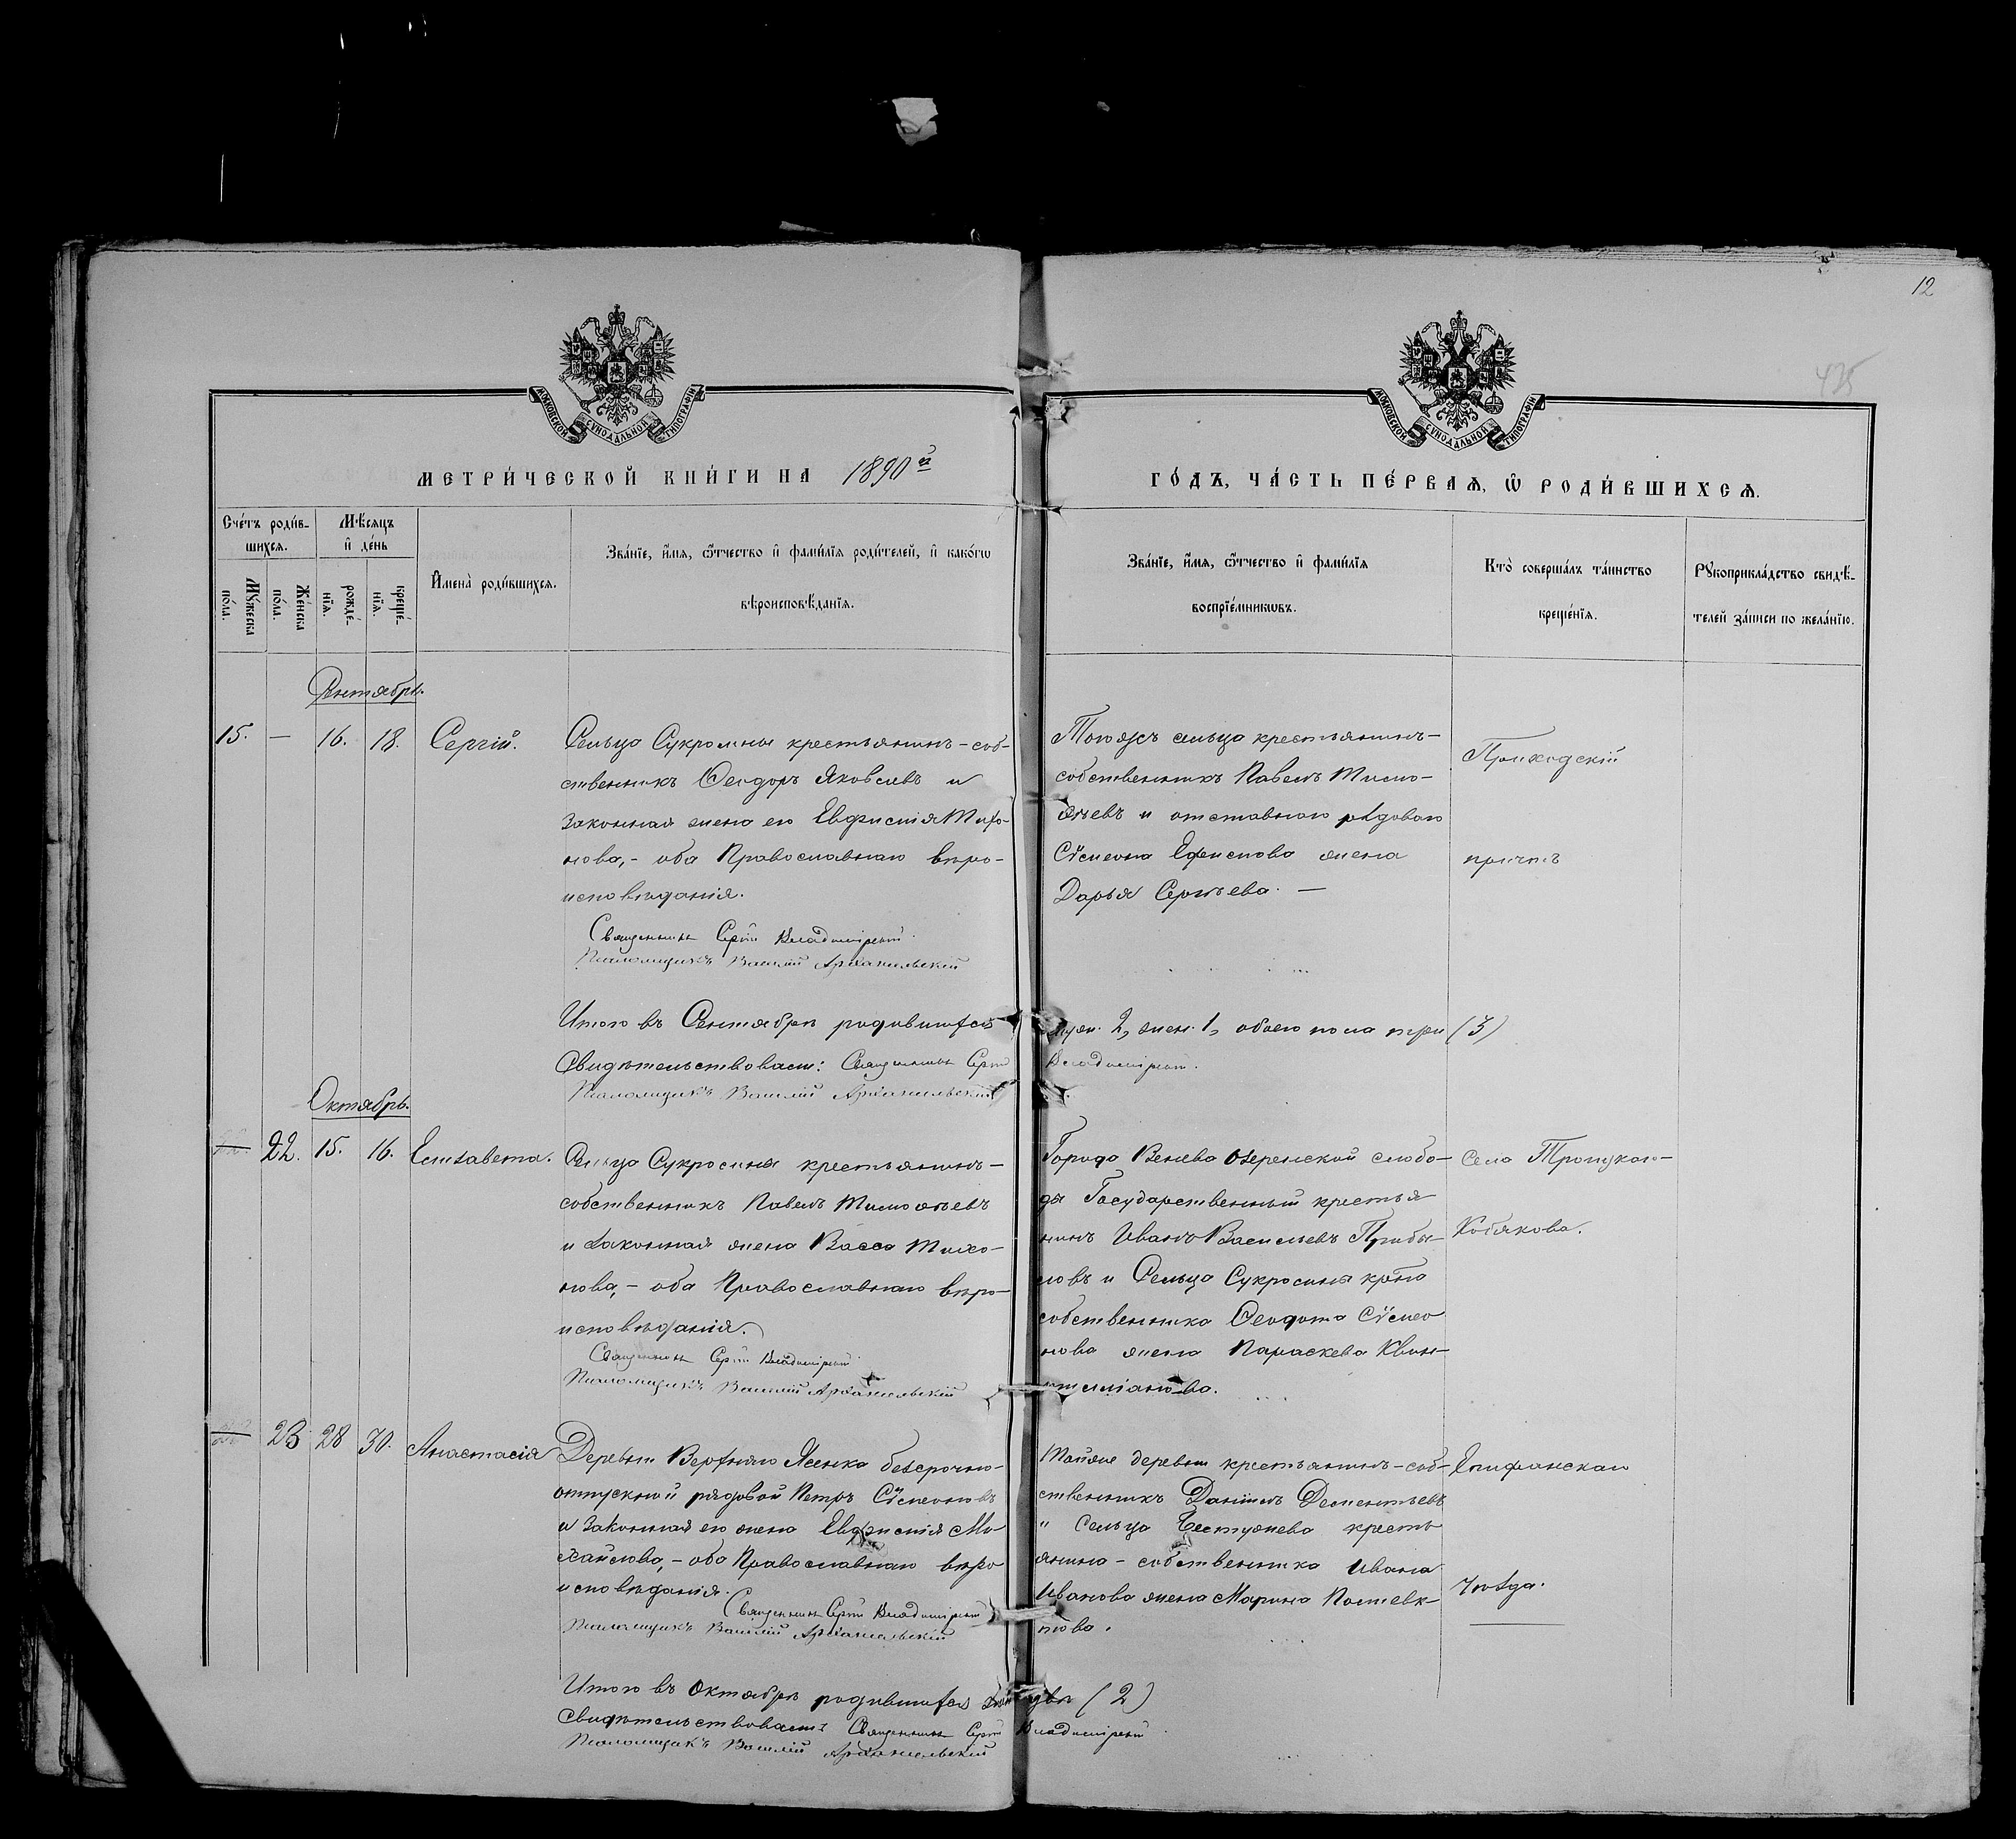 12
435
МОСКОВСКОЙ СѴНОДАЛЬНОЙ ТИПОГРАФІИ
МОСКОВСКОЙ СѴНОДАЛЬНОЙ ТИПОГРАФІИ
МЕТРИ́ЧЕСКОЙ КНИ́ГИ НА 1890й
ГО́ДЪ, ЧА́СТЬ ПЕ́РВАѦ, Ѿ РОДИ́ВШИХСѦ.
Сче́тъ роди́в-
шихсѧ.
Мꙋ́жеска
по́ла.
Же́нска
по́ла.
Мѣ́сяцъ
и҆ де́нь
рожде́-
нїѧ.
креще́-
нїѧ.
И҆мена̀ роди́вшихсѧ.
Зва́нїе, и҆́мѧ, ѻ҆́тчество и҆ фами́лїѧ роди́телей, и҆ како́гѡ
вѣроисповѣ́данїѧ.
Зва́нїе, и҆́мѧ, ѻ҆́тчество и҆ фами́лїѧ
воспрїе́мникѡвъ.
Кто̀ соверша́лъ та́инство
креще́нїѧ.
Рꙋкоприкла́дство свидѣ́-
телей за́писи по жела́нїю.
Сентябрь.
15. — 16. 18. Сергій.
Сельца Сукромны крестьянинъ-соб-
ственникъ Ѳеодоръ Яковлевъ и
законная жена его Евфимія Тихо-
нова,- оба Православнаго вѣро-
исповѣданія.
Священникъ Сергій Владимірскій
Псаломщикъ Василій Архангельскій
Тогожъ сельца крестьянинъ-
собственникъ Павелъ Тимо-
ѳеевъ и отставного рядового
Сѵмеона Ефимова жена
Дарья Сергѣева. —
Приходскій
причтъ
Итого въ Сентябрѣ родившихся муж. 2, жен. 1, обоего пола три (3)
Свидѣтельствовали: Священникъ Сергій Владимірскій.
Псаломщикъ Василій Архангельскій
Октябрь.
22. 15. 16. Елизавета.
Сельца Сукромны крестьянинъ-
собственникъ Павелъ Тимоѳеевъ
и законная жена Васса Тихо-
нова,- оба Православнаго вѣро-
исповѣданія.
Священникъ Сергій Владимірскій
Псаломщикъ Василій Архангельскій
Города Венева Озеренской слобо-
ды Государственный крестья
нинъ Иванъ Васильевъ Прибы-
ловъ и Сельца Сукромны крѣна
собственника Ѳеодота Сѵмео
нова жена Параскева Квин-
тиліанова.
Села Троицкаго-
Кобякова.
23 28 30. Анастасія
Деревни Верхняго Ясенка безсрочно-
отпускной рядовой Петръ Сѵмеоновъ
и законная его жена Евфимія Ми-
хайлова,- оба Православнаго вѣро
исповѣданія.
Священникъ Сергій Владимірскій
Псаломщикъ Василій Архангельскій
Тойже деревни крестьянинъ-соб-
ственникъ Даніилъ Дементьевъ
и Сельца Бестужева кресть
янина-собственника Ивана
Иванова жена Марина Полиевк-
това.
Епифанскаго
уѣзда.
Итого въ Октябрѣ родившихся двѣ (2)
Свидѣтельствовали: Священникъ Сергій Владимірскій
Псаломщикъ Василій Архангельскій